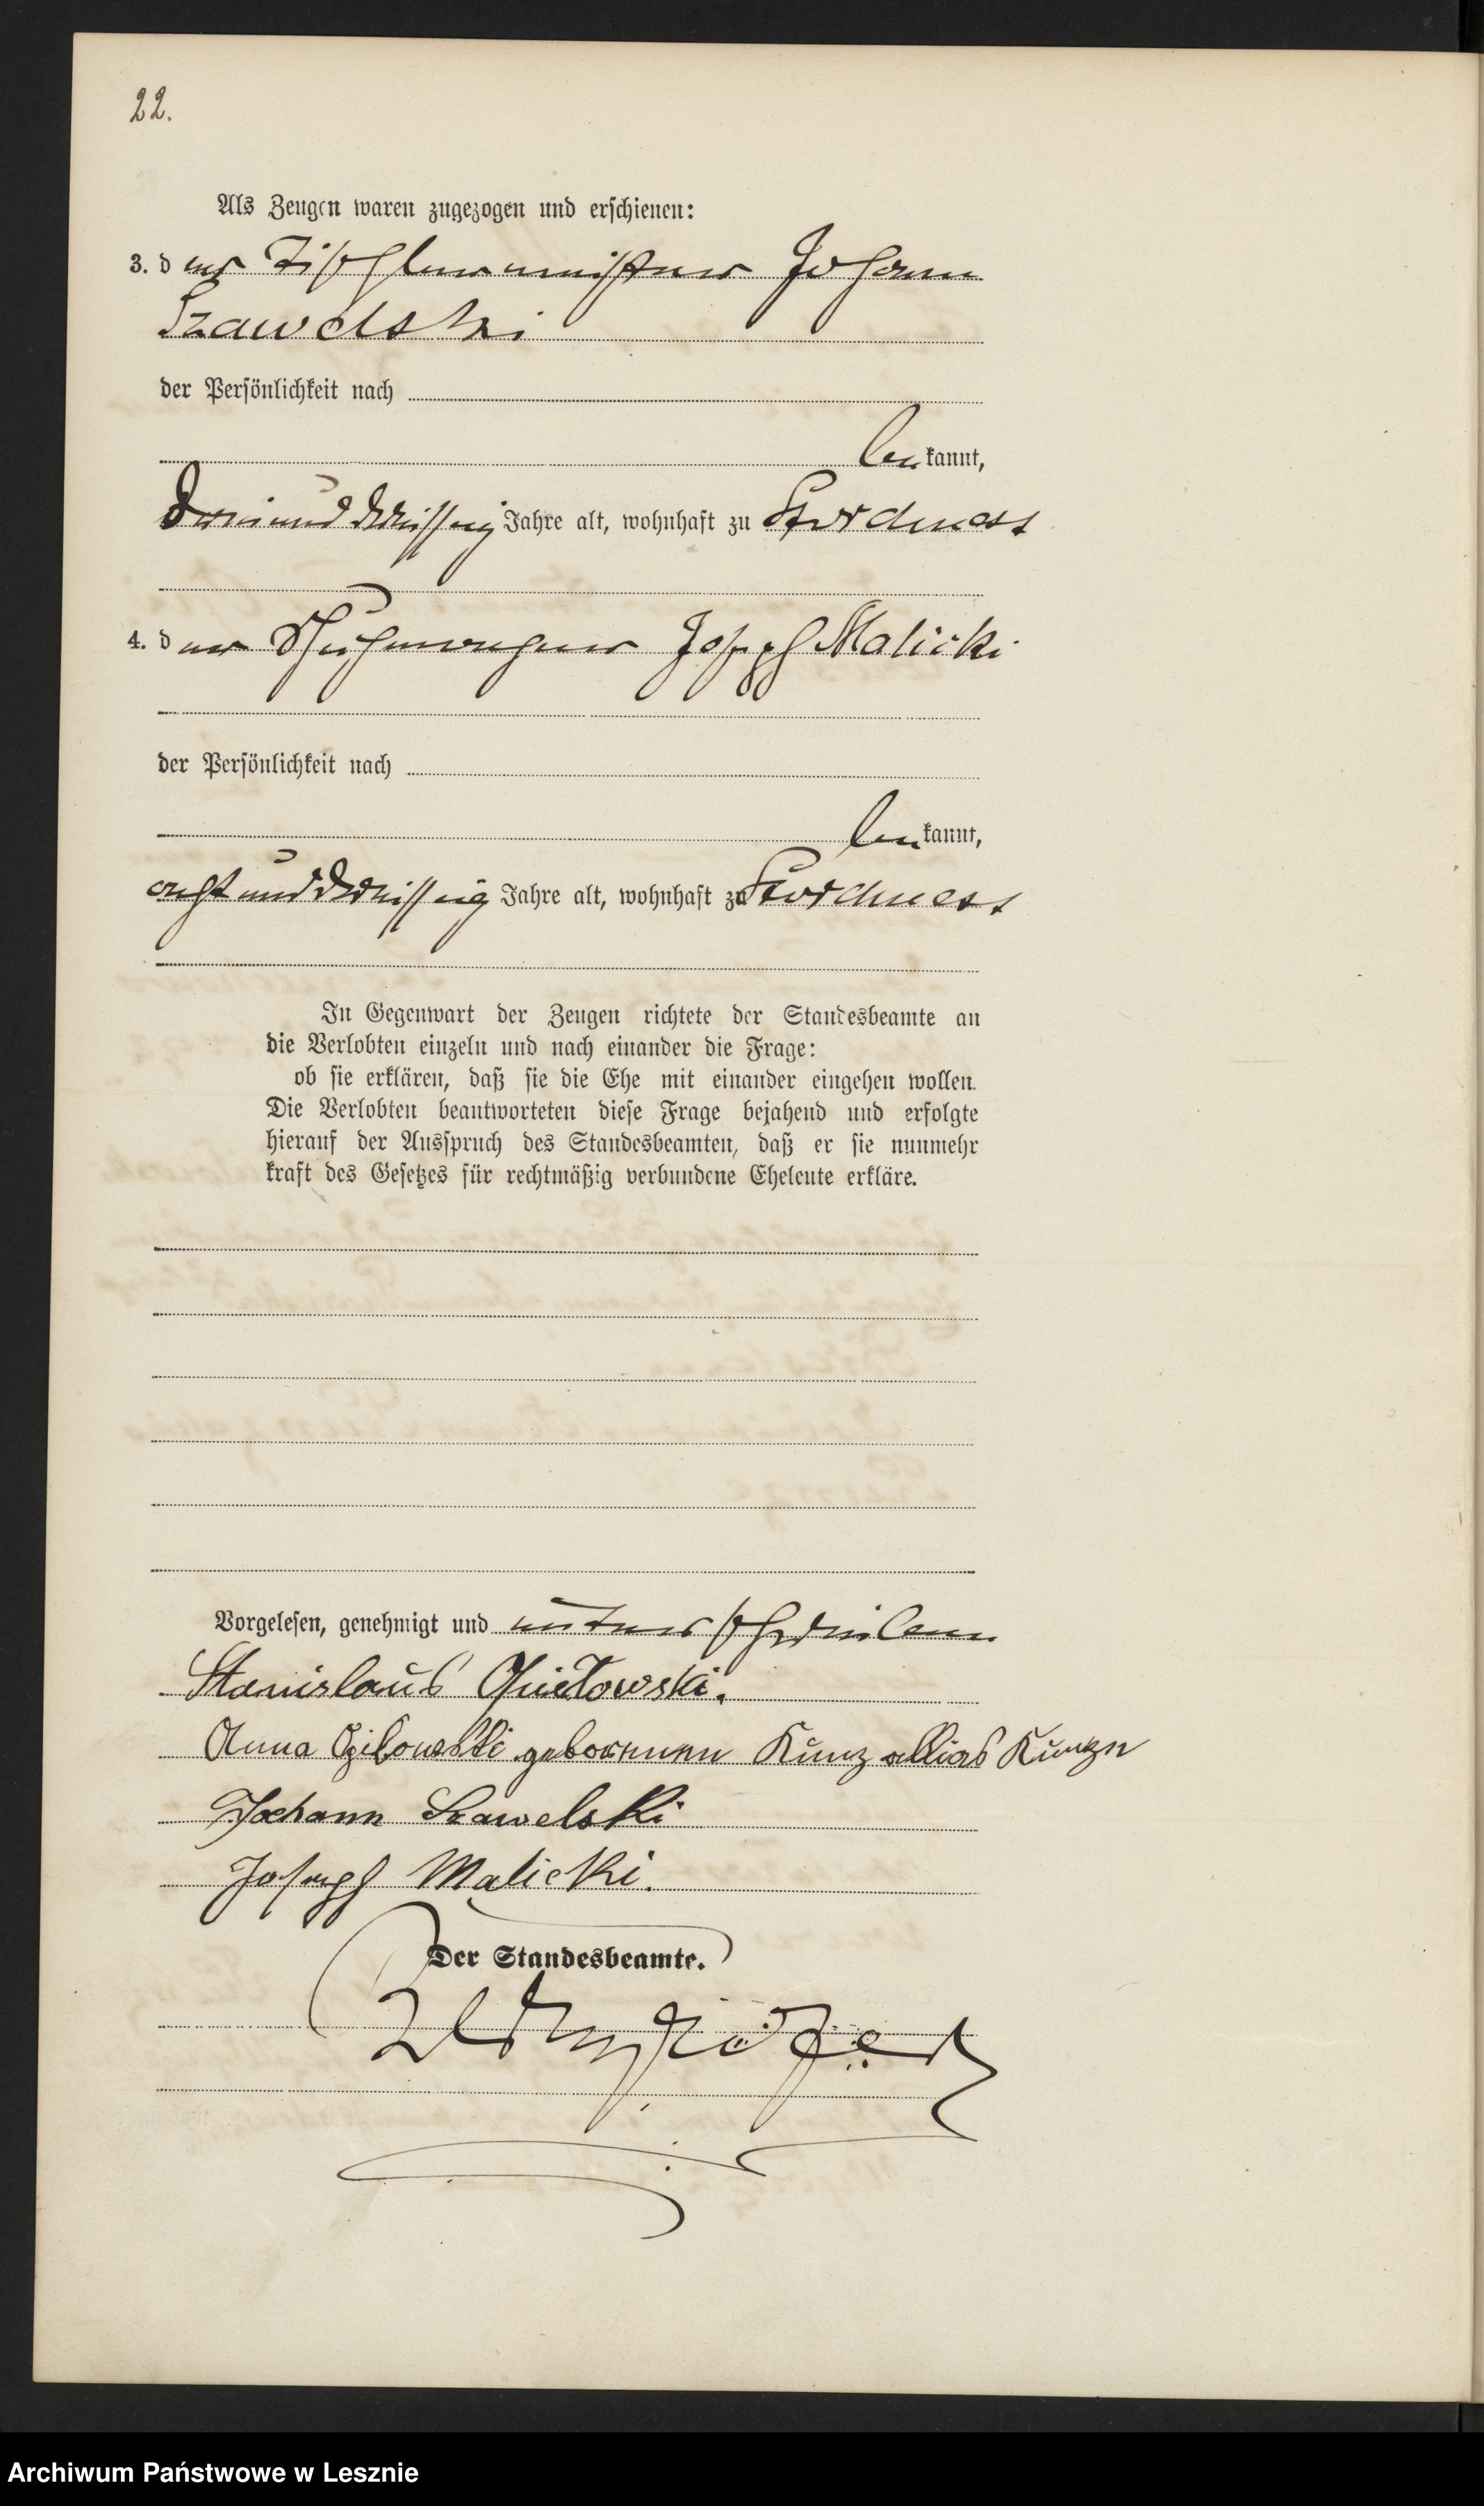 22.
Als Zeugen waren zugezogen und erschienen:
3. der Tischlermeister Johann
Szawelski
der Persönlichkeit nach
bekannt,
dreiunddreissig Jahre alt, wohnhaft zu Storchnest
4. der Joseph Malicki
der Persönlichkeit nach
bekannt,
achtunddreissig Jahre alt, wohnhaft zu Storchnest
In Gegenwart der Zeugen richtete der Standesbeamte an
die Verlobten einzeln und nach einander die Frage:
ob sie erklären, daß sie die Ehe mit einander eingehen wollen.
Die Verlobten beantworteten diese Frage bejahend und erfolgte
hierauf der Ausspruch des Standesbeamten, daß er sie nunmehr
kraft des Gesetzes für rechtmäßig verbundene Eheleute erkläre.
Vorgelesen, genehmigt und unterschrieben
Stanislaus
Anna geborenen Kunz allias Kunze
Johann Szawelski
Joseph Malicki.
Der Standesbeamte.
Archiwum Państwowe w Lesznie